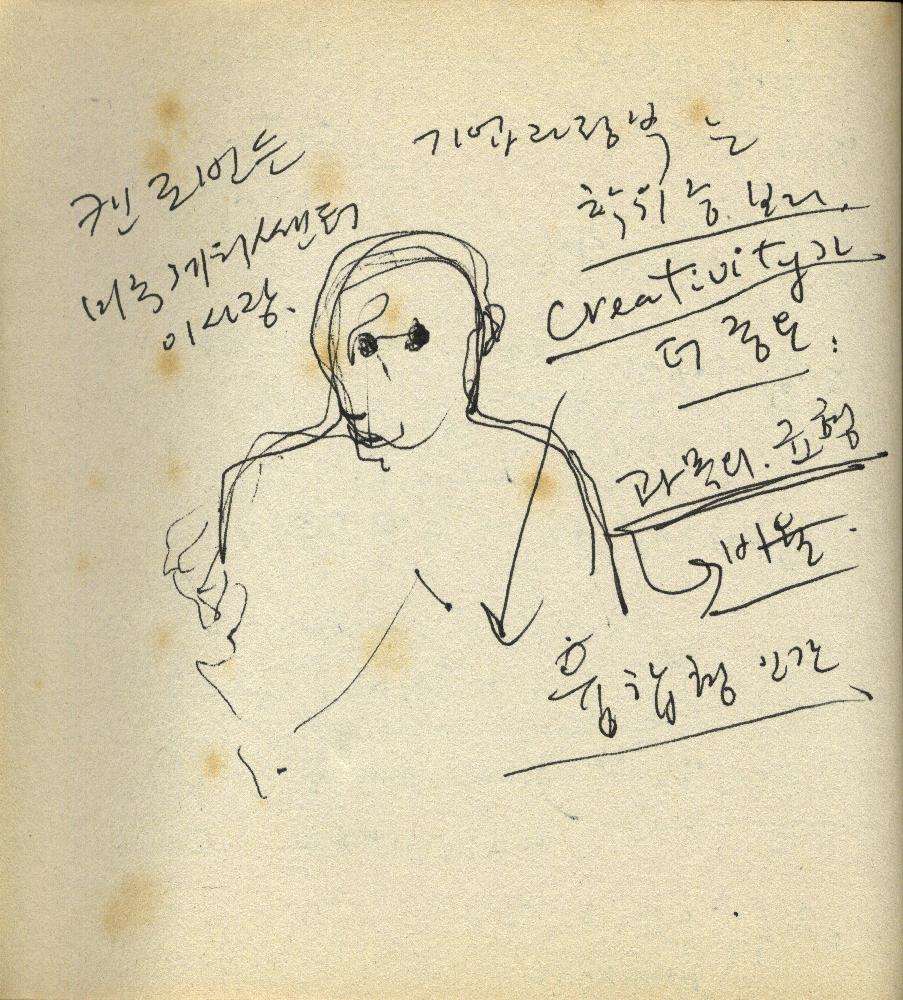 켄 로빈슨
미국 게티센터
이사장.
는
학위 능.보다.
creativity가
더 중요:
과목의.균형
비율.
융합형 인간